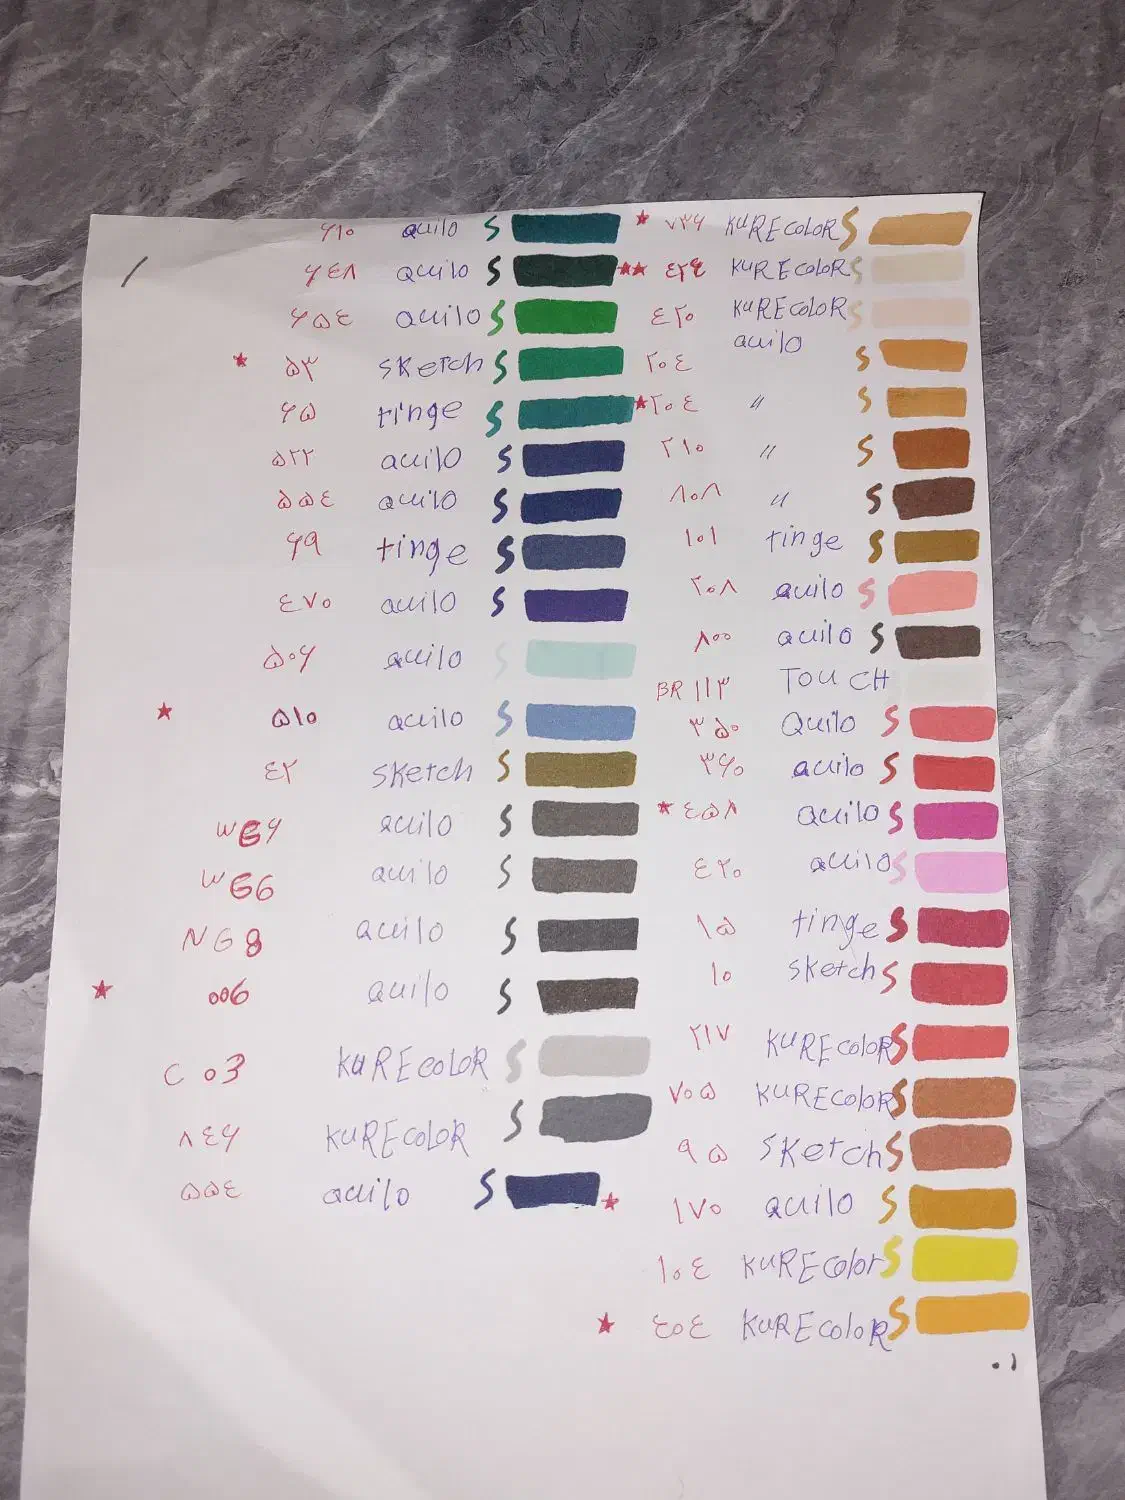 ۶۱۰ aquilo S
۶٤۸ aquilo S
۶۵٤ aquilo S
★ ۵۳ sketch S
۶۵ tinge S
۵۲۲ aquilo S
۵۵٤ aquilo S
۶۹ tinge S
٤۷۰ aquilo S
۵۰۶ aquilo S
★ ۵۱۰ aquilo S
٤۲ sketch S
WG۶ aquilo S
WG6 aquilo S
NG8 aquilo S
★ 006 aquilo S
C 03 KuREcoloR S
۸٤۶ KuREcoloR S
۵۵٤ aquilo S
★ ۷۳۶ KuREcoloR S
★★ ٤۲٤ KuREcoloR S
٤۲۰ KuREcoloR S
۲۰٤ aquilo S
★ ۲۰٤〃 S
۲۱۰ 〃 S
۸۰۸ 〃 S
۱۰۱ tinge S
۲۰۸ aquilo S
۸۰۰ aquilo S
BR ۱۱۳ TOUCH
۳۵۰ Quilo S
۳۶۰ aquilo S
★ ٤۵۸ aquilo S
٤۲۰ aquilo S
۱۵ tinge S
۱۰ sketch S
۲۱۷ KuREcoloR S
۷۰۵ KuREcoloR S
۹۵ sketch S
★ ۱۷۰ aquilo S
۱۰٤ KuREcolor S
★ ٤۰٤ KuREcoloR S